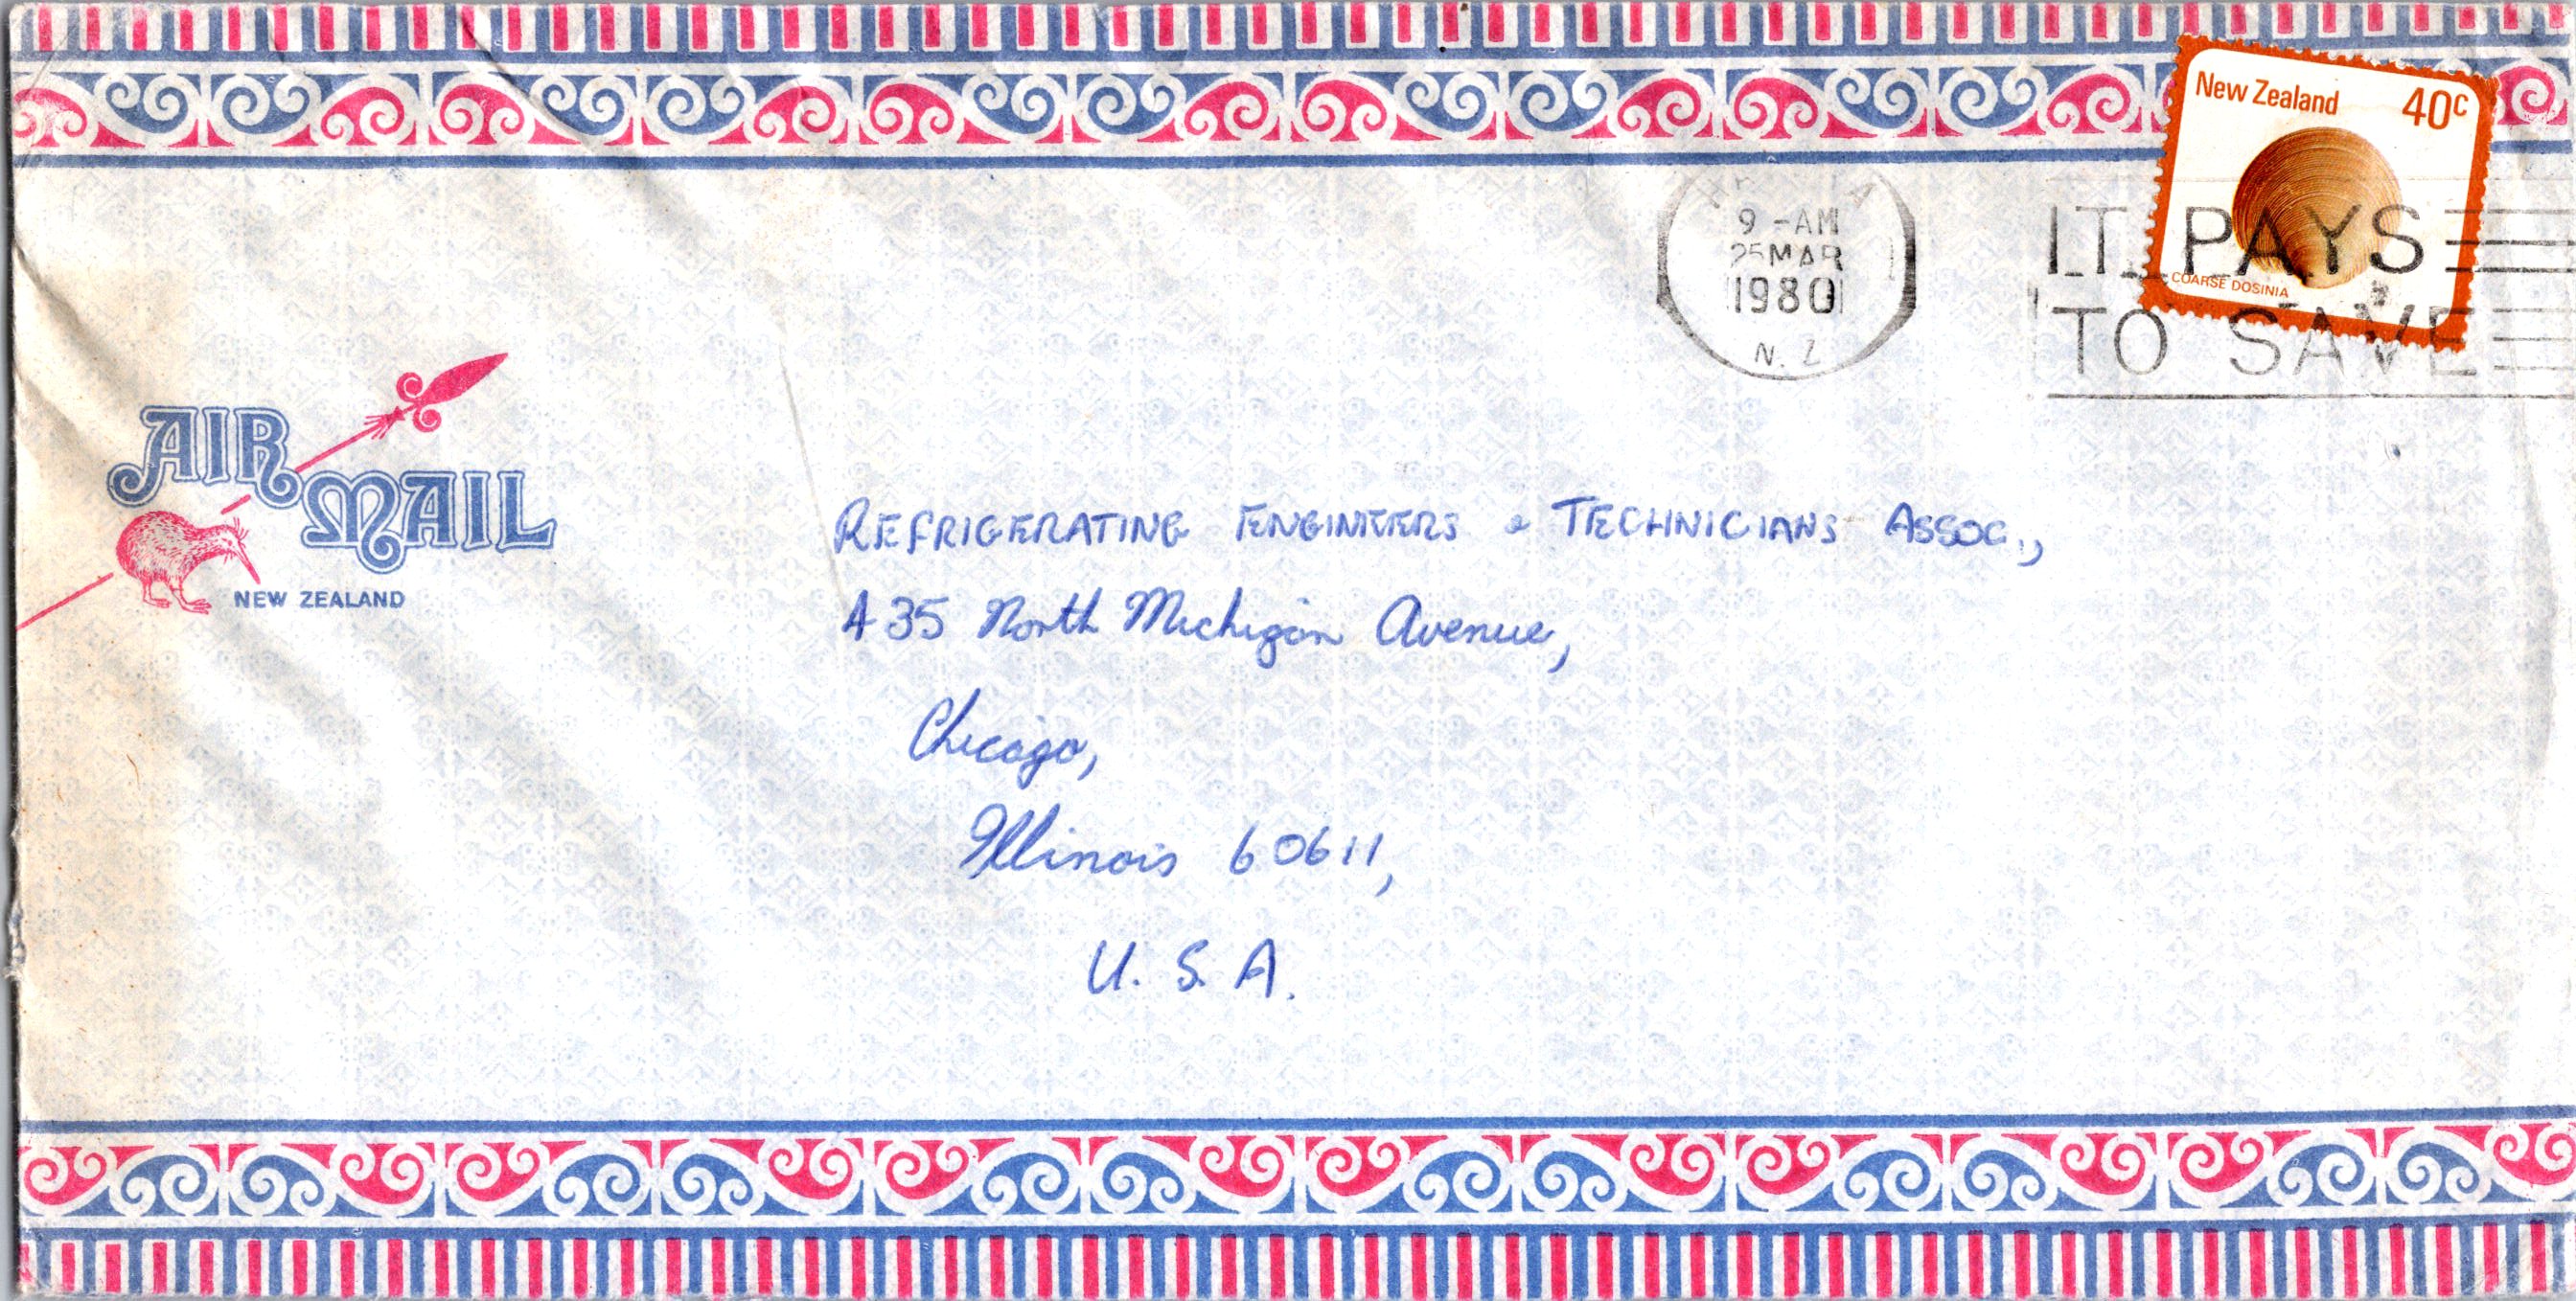 New Zealand 40c
9-AM
25 MAR
1980
N.Z
IT PAYS
TO SAVE
COARSE DOSINIA
AIR MAIL
NEW ZEALAND
REFRIGERATING ENGINEERS & TECHNICIANS ASSOC.,
435 North Michigan Avenue,
Chicago,
Illinois 60611,
U.S.A.